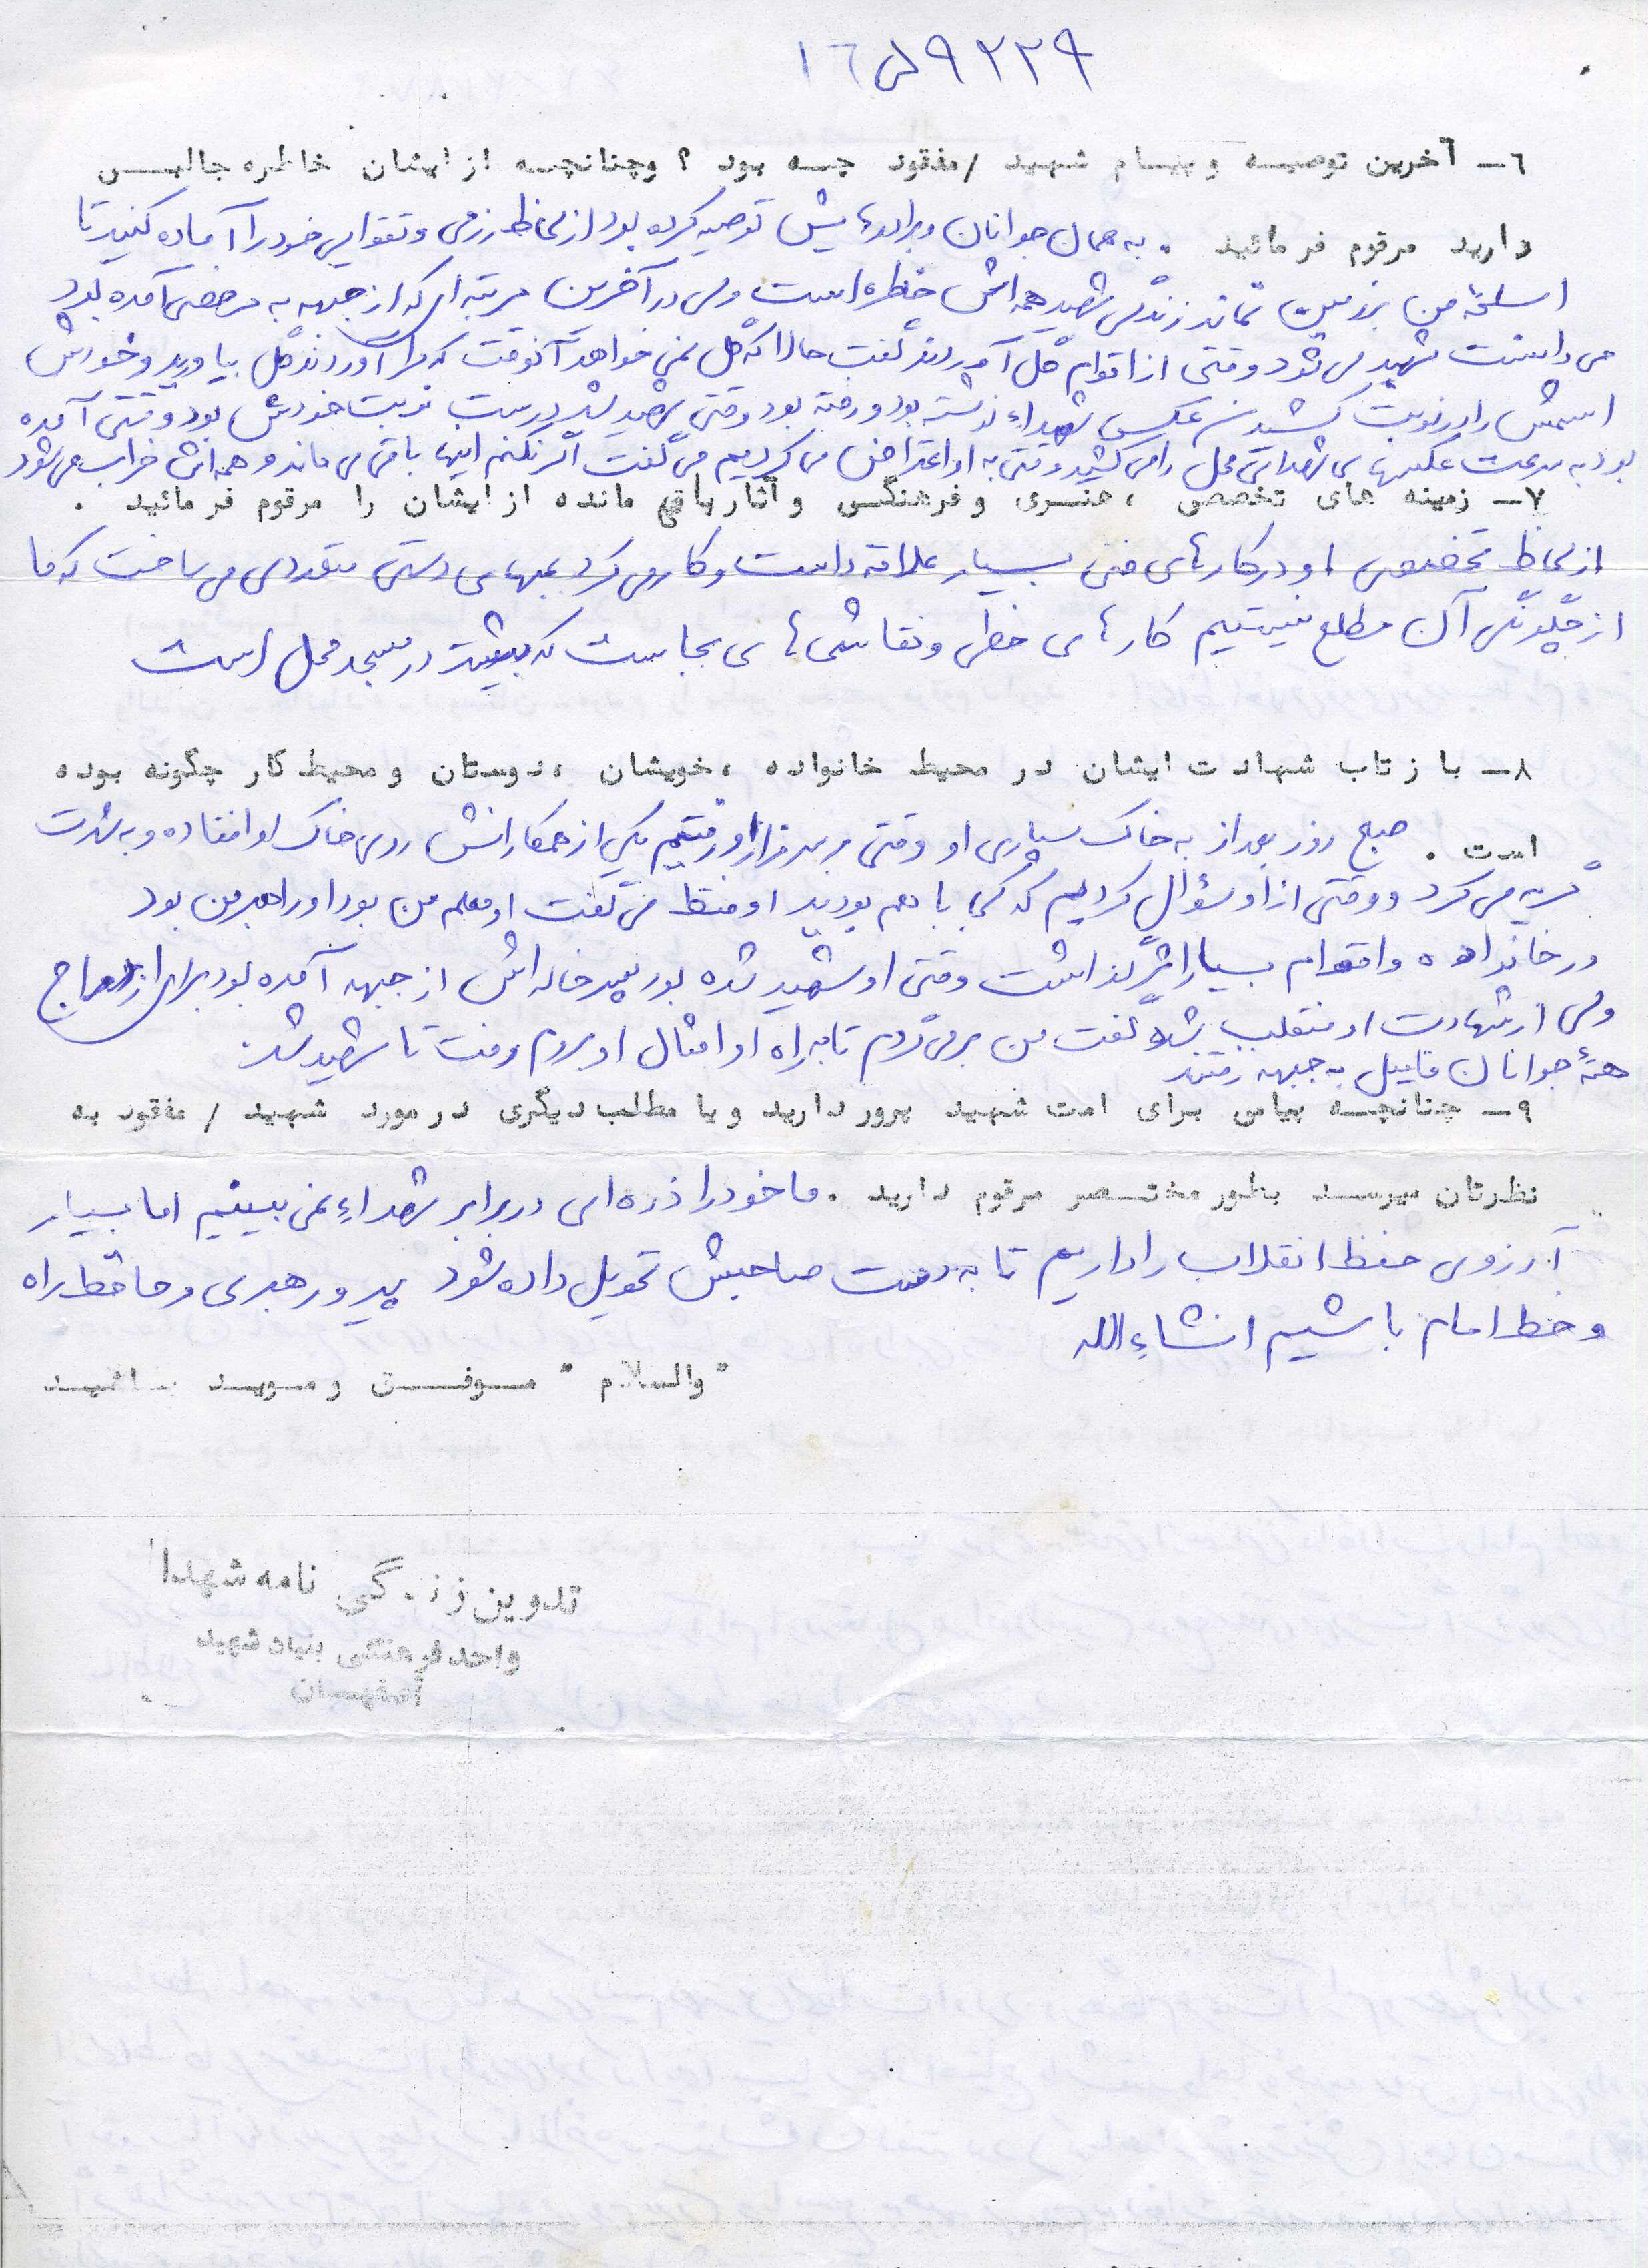 ۹۲۲۹ ل ۱٦
٦ــ آخرین توصیــه و پیــام شهیـد /مفقود چــه بود ؟ وچنانچــه از ایشان خاطره جالبــی
دارید مرقوم فرمائید . به همان جوانان و برادرهایش توصیه کرده بود از لحاظ رزمی و تقوایی خود را آماده کنید تا
اسلحهٔ من بزمین نماند زندگی شهید همه‌اش خاطره است ولی در آخرین مرتبه‌ای که از جبهه به مرخصی آمده بود
می‌دانست شهید می‌شود وقتی از اقوام گل آوردند گفت حالا که گل نمی‌خواهد آنوقت که مرا آوردند گل بیاورید و خودش
اسمش را در نوبت کشیدن عکس شهداء نوشته بود و رفته بود وقتی شهید شد درست نوبت خودش بود وقتی آمده
بود به سرعت عکسهای شهدای محل را می‌کشید وقتی به او اعتراض می‌کردیم می‌گفت اگر نکنم اینها باقی می‌ماند و همه‌اش خراب می‌شود
۷ــ زمینه های تخصصی ، هنــری و فرهنگــی و آثار باقی مانده از ایشان را مرقوم فرمائید .
از لحاظ تخصصی او در کارهای فنی بسیار علاقه داشت و کار می‌کرد بمبهای دستی متعددی می‌ساخت که ما
از چگونگی آن مطلع نیستیم کارهای خطی و نقاشی‌های بجاست که بیشتر در مسجد محل است
۸ــ بازتاب شهادت ایشان در محیط خانواده ، خویشان ، دوستان و محیط کار چگونه بوده
است . صبح روز بعد از به خاک سپاری او وقتی بر سر مزار او رفتیم یکی از همکارانش روی خاک او افتاده و به شدت
گریه می‌کرد و وقتی از او سؤال کردیم که کی با هم بودید او فقط می‌گفت او معلم من بود او راهبر من بود
در خانواده و اقوام بسیار اثر گذاشت وقتی او شهید شده بود پسر خاله‌اش از جبهه آمده بود برای ازدواج
ولی از شهادت او منقلب شد گفت من برمی‌گردم تا به راه او امثال او بروم و رفت تا شهید شد.
همهٔ جوانان فامیل به جبهه رفتند
۹ــ چنانچــه پیامی برای امت شهید پرور دارید و یا مطلب دیگری در مورد شهید / مفقود به
نظرتان میرســد بطور مختــصر مرقوم دارید . ما خود را ذره‌ای در برابر شهداء نمی‌بینیم اما بسیار
آرزوی حفظ انقلاب را داریم تا به دست صاحبش تحویل داده شود پیرو رهبری و حافظ راه
و خط امام باشیم انشاءالله
" والسلام " مــوفــق و مــویــد باشیــد
تدوین زندگی نامه شهدا
واحد فرهنگی بنیاد شهید
اصفهــان